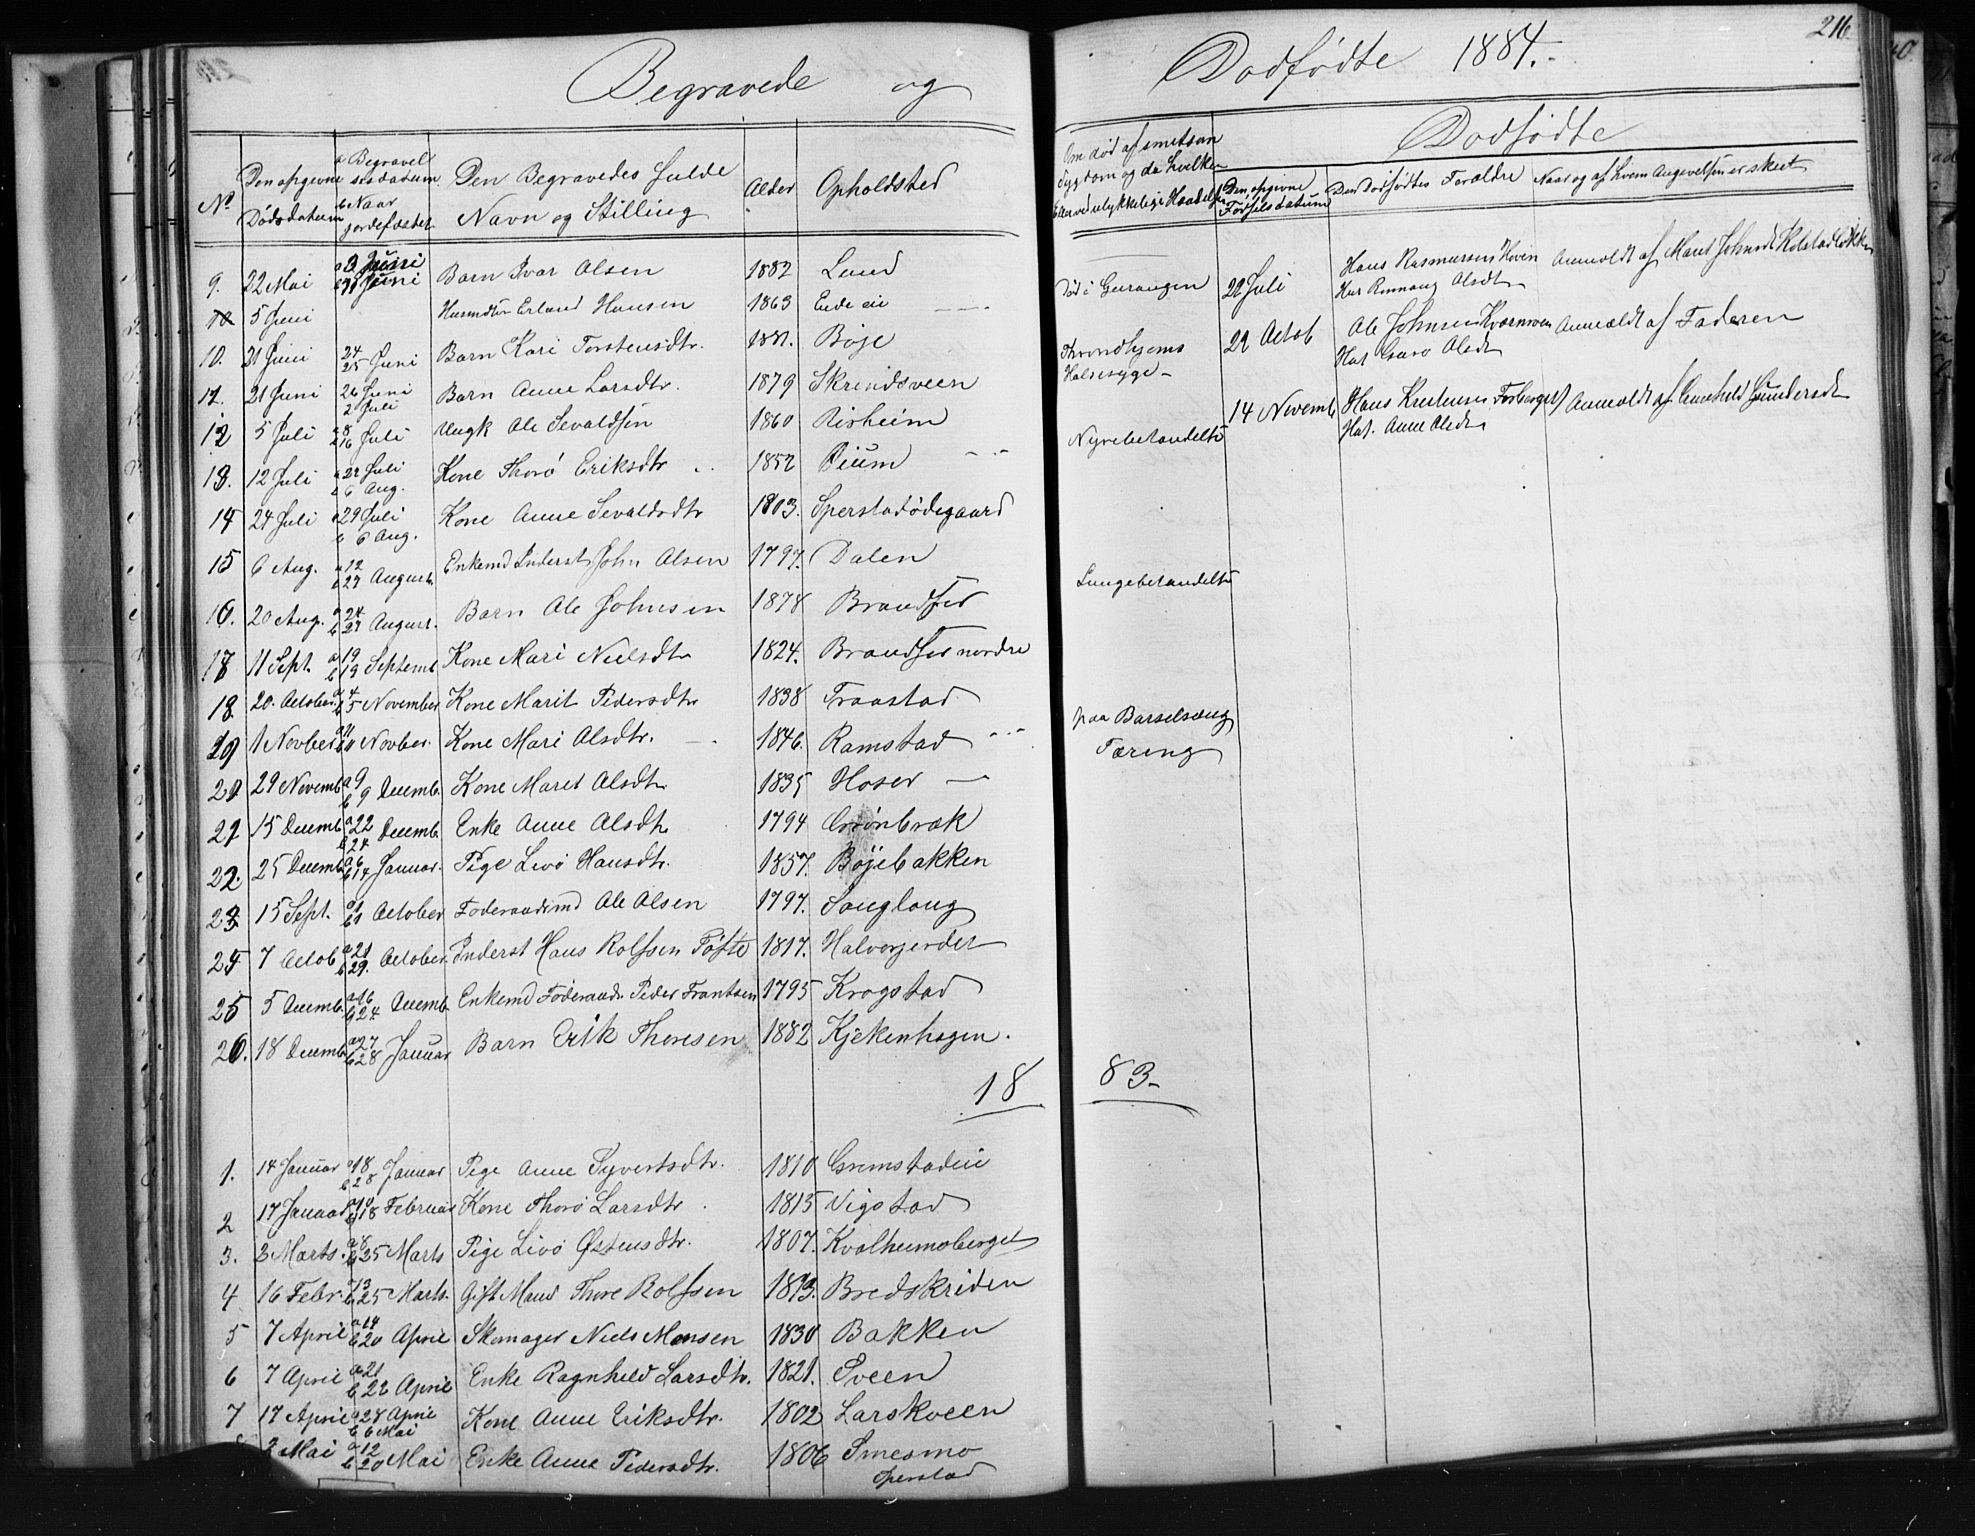 Begravede og
Dodfødte 1884.
216
No
Den opgivne Dødsdatum
a Begravelsesdatum b Naar jordefæstet
Den Begravedes fulde Navn og Stilling
Alder
Opholdsted
9. 22 Mai a 3 Juni b Juni Barn Ivar Olsen 1882 Lund
10 5 Juni Husmd Erland Hansen 1863 Endeeie
10. 21 Juni 24 25 Juni Barn Kari Torstensdtr. 1881. Böje
11. 21 Juni 26 Juni 2 Juli Barn Anne Larsdtr. 1879 Skrindsveen
12 5 Juli a 8 b 16 Juli Ungk Ole Sevaldsen 1860 Risheim
13. 12 Juli a 22 Juli b 6 Aug. Kone Thorö Eriksdtr 1852
14 24 Juli a 29 Juli b 6 Aug. Kone Anne Sevaldsdtr 1803. Sperstadödegaard
15 6 Aug. a 12 b 27 August. Enkemd Inderst John Olsen 1797. Dalen
16. 20 Aug. a 24 b 27 August. Barn Ole Johnsen 1878 Brandsfed
17 11 Sept. a 19 b 19 Septemb Kone Mari Nielsdtr 1824. Brandsfed nordre
18. 20. October a 4 b 5 November Kone Marit Pedersdtr 1838 Traastad
19 1 Novber a 11 b 11 Novber. Kone Mari Olsdtr. 1846. Ramstad
20 29 Novemb a 9 b 9 Decemb. Kone Marit Olsdtr 1835 Hoser
21 15 Decemb a 22 b 24 Decemb. Enke Anne Olsdtr. 1794 Grönbræk
22. 25 Decemb a 6 b 14 Januar. Pige Livö Hansdtr. 1857. Böjebakken
23 15 Sept. a 1 b 1 October Föderaadsmd Ole Olsen 1797. Sauglaug
24 7 Octob a 21 b 29. October. Inderst Hans Rolfsen Töfte 1817. Halvorjerdet
25 5 Decemb. a 16 b 24 Decemb. Enkemd Föderaads. Peder Frantsen 1795 Krogstad
26. 18 Decemb a 27 b 28 Januar Barn Erik Thoresen 1882 Kjekenhagen.
18 83.
1. 14 Januar a 18 b 28 Januar Pige Anne Syvertsdtr. 1810 Grimstadeie
2 17 Januar a 10 b 18 Februar Kone Thorö Larsdtr 1815 Vigstad
3. 3 Marts. a 8 b 25 Marts Pige Livö Østensdtr. 1807. Kvalheimsberget
4 16 Febr. a 13 b 25 Marts. Gift Mand Thore Rolfsen 1813. Bredskriden
5 7 April a 14 b 20 April Skomager Niels Monsen 1830 Bakken
6 7 April a 21 b 22 April Enke Ragnhild Larsdtr. 1821. Sveen
7 17 April a 28 April b 6 Mai Kone Anne Eriksdtr. 1802 Larskveen
8 3 Mai a 12 b 20 Mai Enke Anne Pedersdtr. 1806 Smesmo
Sperstad
Om död af smitsom Sygdom og da hvilken Eller ved ulykkelige Hændelser
Dodfödte
Den opgivne Födselsdatum
Den Dodfödtes Forældre
Naar og af hvem Angivelsen er skeet
22 Juli Hans Rasmussen Hoven Hus Rønnaug Olsdtr Anmeldt af Marit Johnsdt Kolstadløkken
22 Octob Ole Johnsen Kvernmoen Hus. Guro Olsdtr Anmeldt af Faderen
14 Novemb Hans Kristensen Forberget Hus. Anne Olsdtr Anmeldt af Gunhild Gundersdtr
Död i
Throndhjems
Halsesyge
Nyrebetændelse
Lungebetændelse
paa Barselseng
Tæring